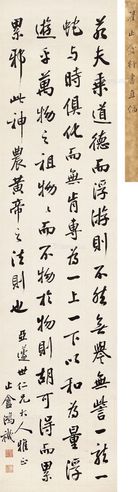 瞿止盦行書直幅
若夫乘道德而浮游則不然無譽無訾一龍一
蛇與時俱化而無肯專為一上一下以和為量浮
遊乎萬物之祖物物而不物於物則胡可得而
累邪此神農黃帝之法則也
亞蘧世仁兄大人雅正
止盦鴻禨